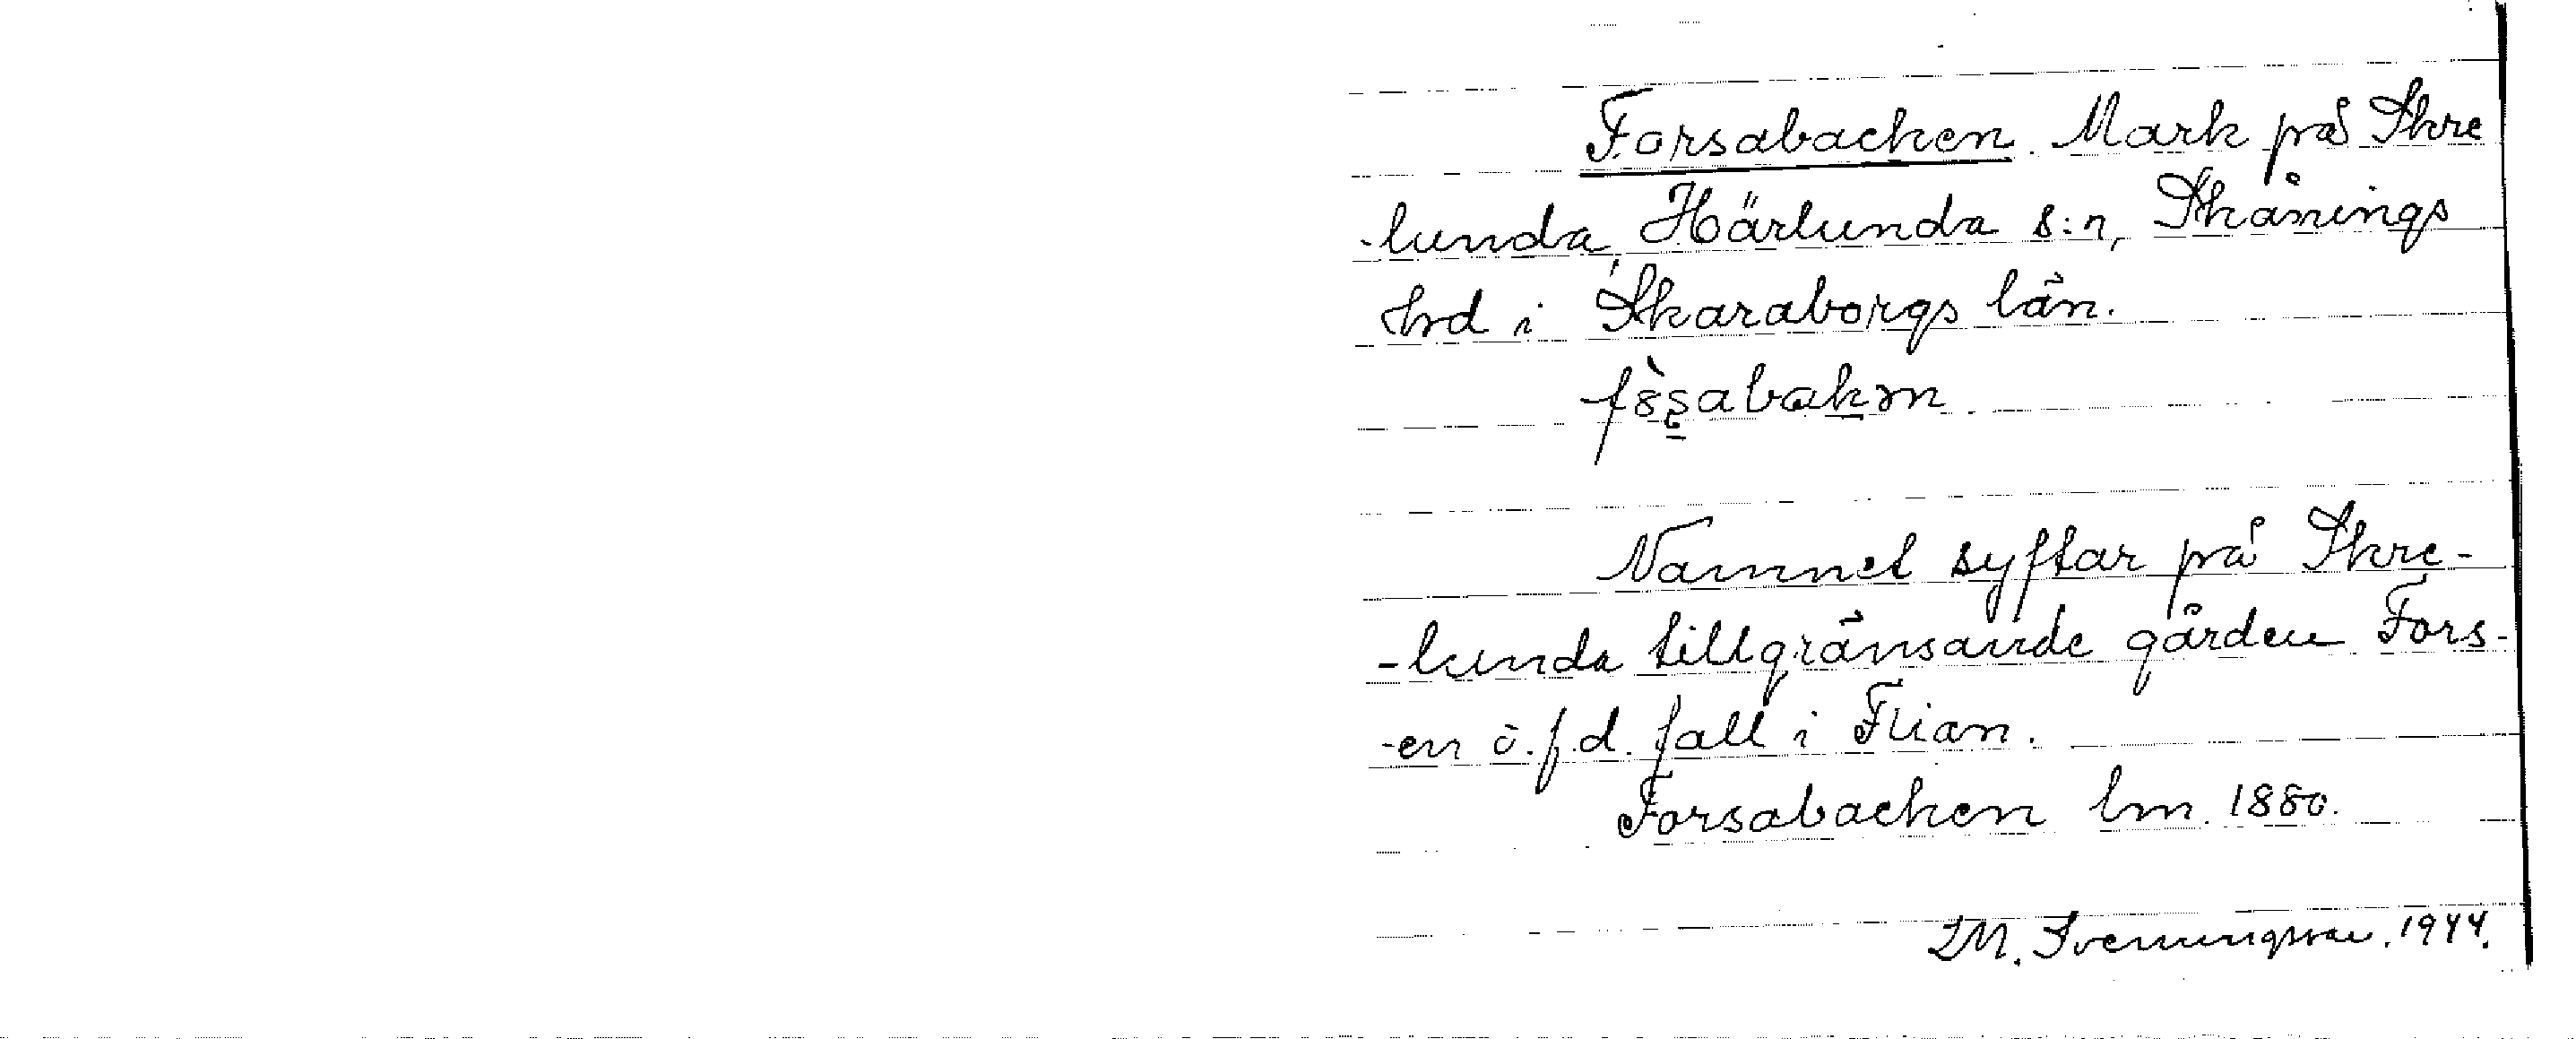 Forsabacken Mark på Skre
-lunda, Härlunda s:n, Skånings
hrd i Skaraborgs län.
Namnet syftar på Skre-
-lunda tillgränsande gården Fors-
-en o. f.d. fall i Flian.
Forsabacken lm. 1880.
Sveningsson. 1944.